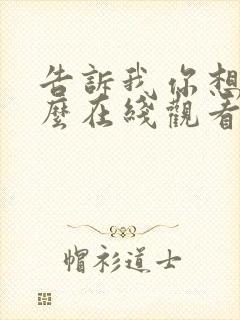 告訴我你想
麼在綫觀看
帽衫道士